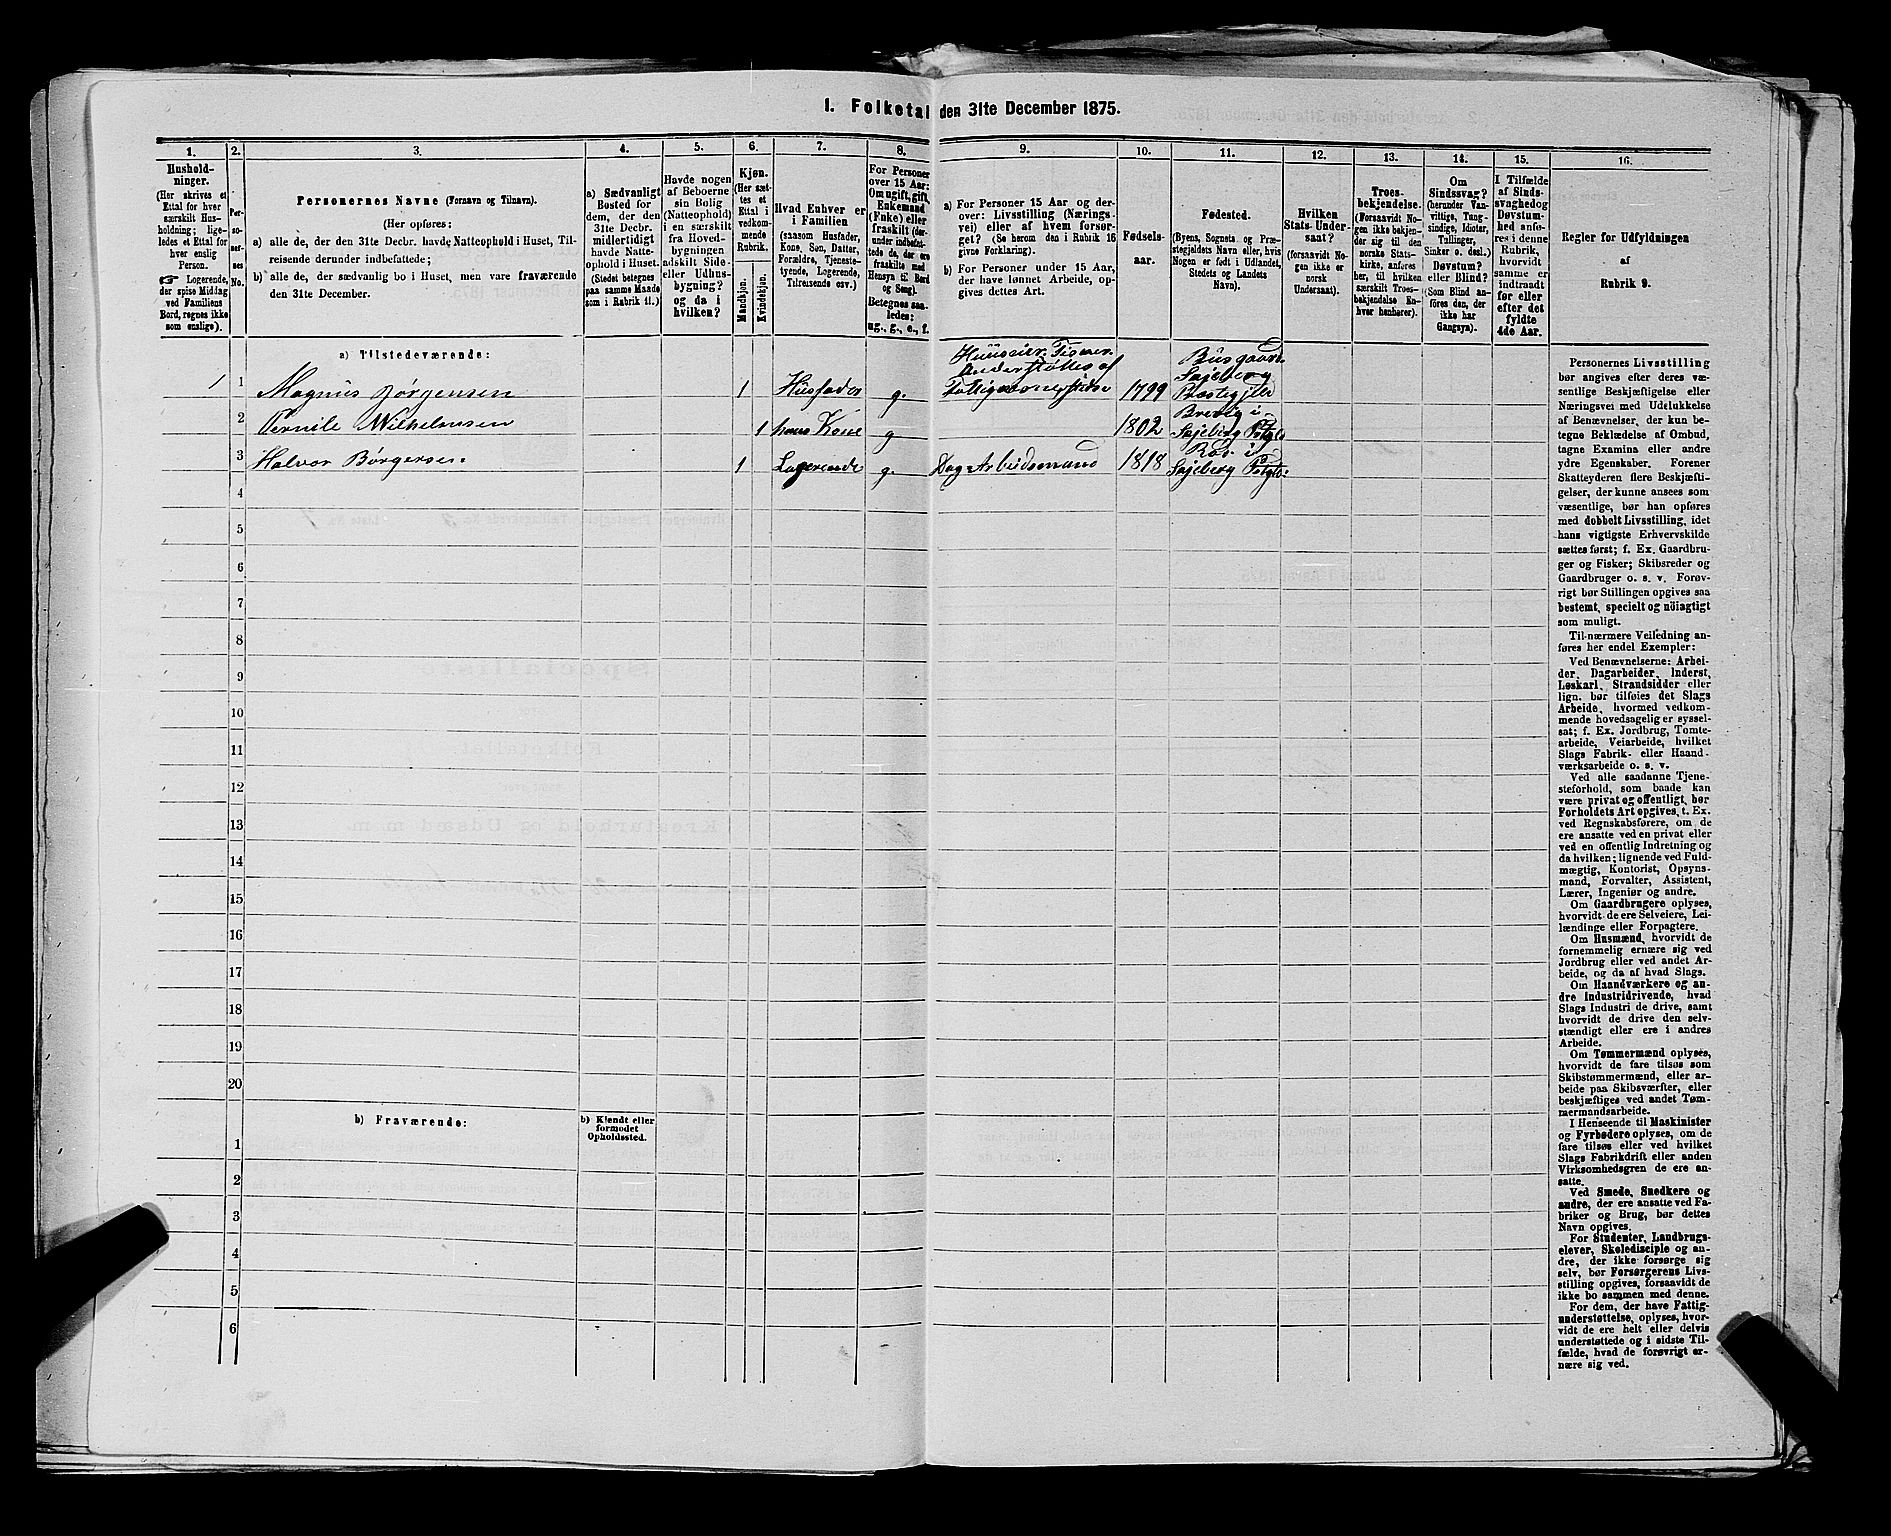 I. Folketal den 31te December 1875.
1. 2. 3. 4. 5. 6. 7. 8. 9. 10. 11. 12. 13. 14. 15. 16.
Hushold-
ninger.
(Her skrives et
Ettal for hver
særskilt Hus-
holdning; lige-
ledes et Ettal for
hver enslig
Person.
☞ Logerende,
der spise Middag
ved Familiens
Bord, regnes ikke
som enslige).
Per-
so-
ner-
nes
No.
Personernes Navne (Fornavn og Tilnavn).
(Her opføres:
a) alle de, der den 31te Decbr. havde Natteophold i Huset, Til-
reisende derunder indbefattede;
b) alle de, der sædvanlig bo i Huset, men vare fraværende
den 31te December.
a) Sædvanligt
Bosted for
dem, der den
31te Decbr.
midlertidigt
havde Natte-
ophold i Huset.
(Stedet betegnes
paa samme Maade
som i Rubrik 11.)
Havde nogen
af Beboerne
sin Bolig
(Natteophold)
i en særskilt
fra Hoved-
bygningen
adskilt Side-
eller Udhus-
bygning?
og da i
hvilken?
Kjøn.
(Her sæt-
tes et
Ettal i
vedkom-
mende
Rubrik.
Mandkjøn.
Kvindekjøn.
Hvad Enhver er
i Familien
(saasom Husfader,
Kone, Søn, Datter,
Forældre, Tjeneste-
tyende, Logerende,
Tilreisende osv.)
For Personer
over 15 Aar:
Om ugift, gift,
Enkemand
(Enke) eller
fraskilt (der-
under indbefat-
tede de, der ere
fraskilte med
Hensyn til Bord
og Seng).
Betegnes saa-
ledes:
ug., g., e., f.
a) For Personer 15 Aar og der-
over: Livsstilling (Nærings-
vei) eller af hvem forsør-
get? (Se herom den i Rubrik 16
givne Forklaring).
b) For Personer under 15 Aar,
der have lønnet Arbeide, op-
gives dettes Art.
Fødsels-
aar.
Fødested.
(Byens, Sognets og Præ-
stegjeldets Navn eller, hvis
Nogen er født i Udlandet,
Stedets og Landets
Navn).
Hvilken
Stats-Under-
saat?
(forsaavidt No-
gen ikke er
norsk
Undersaat).
Troes-
bekjendelse.
(Forsaavidt No-
gen ikke bekjen-
der sig til den
norske Stats-
kirke, anføres
her, til hvilken
særskilt Troes-
bekjendelse En-
hver henhører).
Om
Sindssvag?
(herunder Van-
vittige, Tung-
sindige, Idioter,
Tullinger,
Sinker o. desl.)
Døvstum?
eller Blind?
(Som Blind an-
føres den, der
ikke har
Gangsyn).
I Tilfælde
af Sinds-
svaghed og
Døvstum-
hed anfø-
res i denne
Rubrik,
hvorvidt
samme er
indtraadt
før eller
efter det
fyldte
4de Aar.
Regler for Udfyldningen
af
Rubrik 9.
a) Tilstedeværende:
1 1 Magnus Jørgensen 1 Husfader g. Huuseier. Understøttes af 1799 Præstegjeld
2 Pernile Wilhelmsen 1 hans Kone g 1802 Brevig i
3 Halvor Børgersen 1 Logerende g. Dag-Arbeidsmand 1818
4
5
6
7
8
9
10
11
12
13
14
15
16
17
18
19
20
b) Fraværende:
b) Kjendt eller
formodet
Opholdssted.
1
2
3
4
5
6
Personernes Livsstilling
bør angives efter deres væ-
sentlige Beskjæftigelse eller
Næringsvei med Udelukkelse
af Benævnelser, der kun be-
tegne Beklædelse af Ombud,
tagne Examina eller andre
ydre Egenskaber. Forener
Skatteyderen flere Beskjæfti-
gelser, der kunne ansees som
væsentlige, bør han opføres
med dobbelt Livsstilling, idet
hans vigtigste Erhvervskilde
sættes først; f. Ex. Gaardbru-
ger og Fisker; Skibsreder og
Gaardbruger o. s. v. Forøv-
rigt bør Stillingen opgives saa
bestemt, specielt og nöiagtigt
som muligt.
Til nærmere Veiledning an-
føres her endel Exempler:
Ved Benævnelserne: Arbei-
der, Dagarbeider, Inderst,
Løskarl, Strandsidder eller
lign. bør tilføies det Slags
Arbeide, hvormed vedkom-
mende hovedsagelig er syssel-
sat; f. Ex. Jordbrug, Tomte-
arbeide, Veiarbeide, hvilket
Slags Fabrik- eller Haand-
værksarbeide o. s. v.
Ved alle saadanne Tjene-
steforhold, som baade kan
være privat og offentligt, bør
Forholdets Art opgives, t. Ex.
ved Regnskabsførere, om de
ere ansatte ved en privat eller
ved en offentlig Indretning og
da hvilken; lignende ved Fuld-
mægtig, Kontorist, Opsyns-
mand, Forvalter, Assistent,
Lærer, Ingeniør og andre.
Om Gaardbrugere oplyses,
hvorvidt de ere Selveiere, Lei-
lændinge eller Forpagtere.
Om Husmænd, hvorvidt de
fornemmelig ernære sig ved
Jordbrug eller ved andet Ar-
beide, og da af hvad Slags.
Om Haandværkere og an-
dre Industridrivende, hvad
Slags Industri de drive, samt
hvorvidt de drive den selv-
stændigt eller ere i andres
Arbeide.
Om Tømmermænd oplyses,
hvorvidt de fare tilsøs som
Skibstømmermænd, eller ar-
beide paa Skibsværfter, eller
beskjæftiges ved andet Tøm-
mermandsarbeide.
I Henseende til Maskinister
og Fyrbødere oplyses, om de
fare tilsøs eller ved hvilket
Slags Fabrikdrift eller anden
Virksomhedsgren de ere an-
satte.
Ved Smede, Snedkere og
andre, der ere ansatte ved Fa-
briker og Brug, bør dettes
Navn opgives.
For Studenter, Landbrugs-
elever, Skoledisciple og an-
dre, der ikke forsørge sig
selv, bør Forsørgerens Livs-
stilling opgives, forsaavidt de
ikke bo sammen med denne.
For dem, der have Fattig-
understøttelse, oplyses, hvor-
vidt de ere helt eller delvis
understøttede og i sidste Til-
fælde, hvad de forøvrigt er-
nære sig ved.